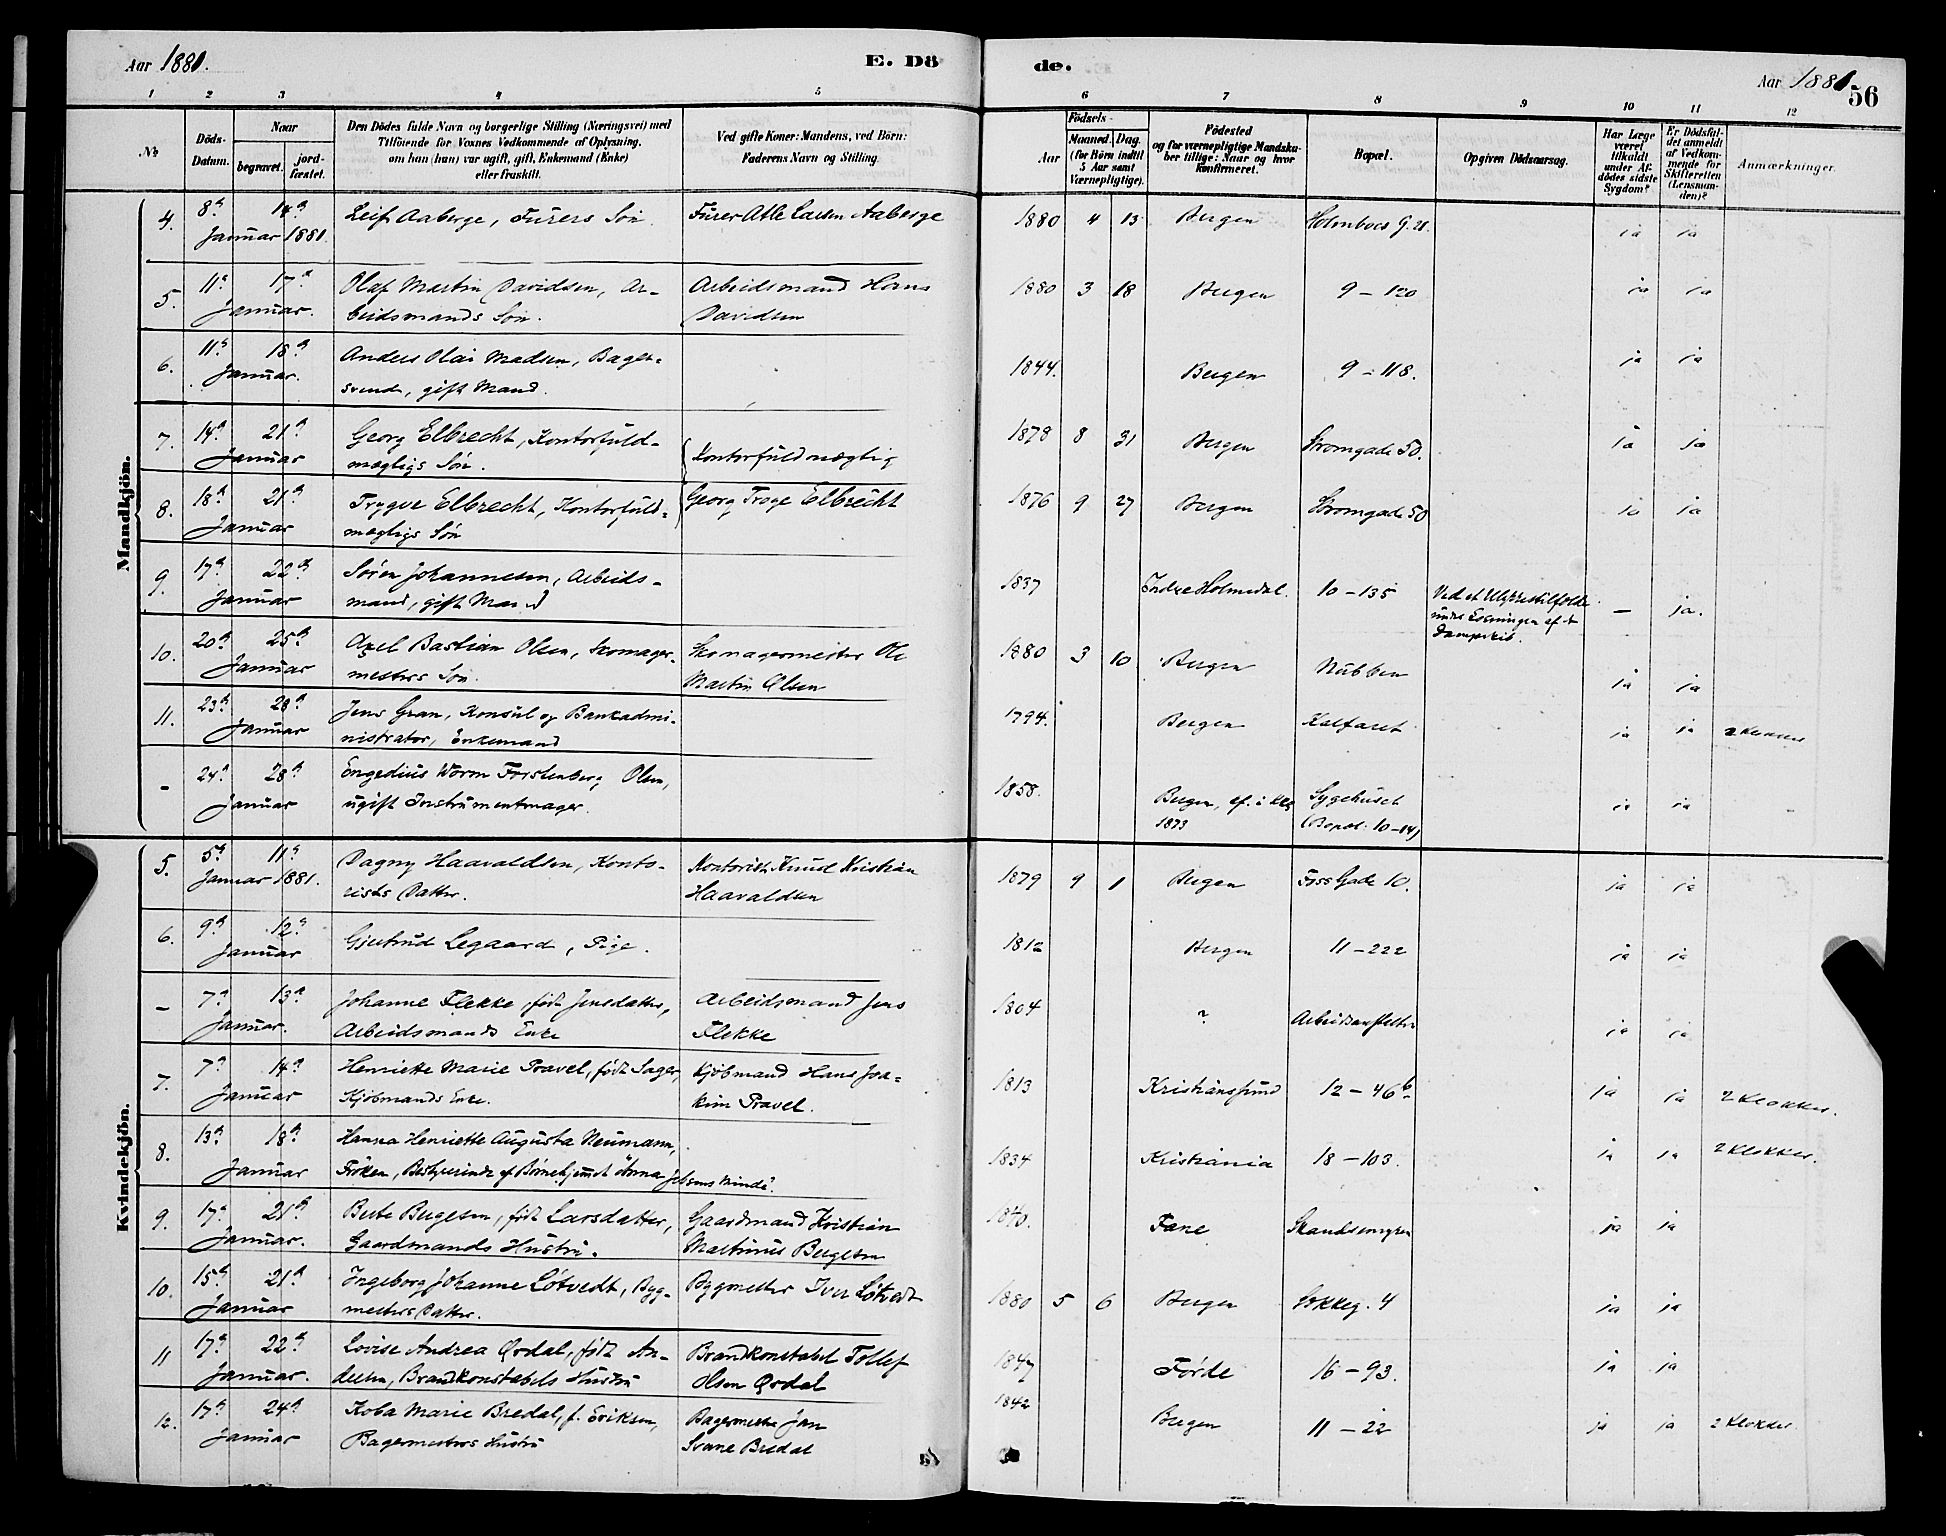 Aar 1881. E. Dö de. Aar 1881 56
1 2 3 4 5 6 7 8 9 10 11 12
№ Döds-Datum. Naar begravet. jordfæstet. Den Dödes fulde Navn og borgerlige Stilling (Næringsvei) med Tilföiende for Voxnes Vedkommende af Oplysning, om han (hun) var ugift, gift, Enkemand (Enke) eller fraskilt. Ved gifte Koner: Mandens, ved Börn: Faderens Navn og Stilling. Födsels- Aar Maaned. Dag. (for Börn indtil 5 Aar samt Værnepligtige). Födested og for værnepligtige Mandskaber tillige: Naar og hvor konfirmeret. Bopæl. Opgiven Dödsaarsag. Har Læge været tilkaldt under Afdödes sidste Sygdom? Er Dödsfaldet anmeldt af Vedkommende for Skifteretten (Lensmanden)? Anmærkninger.
Mandkjön.
4. 8de 14de Leif Aaberge, Furers Søn. Furer Atle Larsen Aaberge 1880 4 13 Bergen Holmboes G. 21. ja ja
Januar 1881.
5. 11te 17de Olaf Martin Davidsen, Ar- Arbeidsmand Hans 1880 3 18 Bergen 9 – 120 ja ja
Januar. beidsmands Søn. Davidsen
6. 11te 18de Anders Olai Madsen, Bager- 1844. Bergen 9 – 118. ja ja
Januar. svend, gift Mand.
7. 14de 21de Georg Elbrecht, Kontorfuld- Kontorfuldmægtig 1878 8 31 Bergen Strømgade 50. ja ja
Januar mægtigs Søn.
8. 18de 21de Trygve Elbrecht, Kontorfuld- Georg Troye Elbrecht 1876 9 27 Bergen Strømgade 50 ja ja
Januar mægtigs Søn
9. 17de 22de Søren Johannesen, Arbeids- 1837 Indre Holmedal. 10 – 135 Ved et Ulykkestilfælde – ja.
Januar mand, gift Mand under Losningen af
Dampskib.
10. 20de 25de Axel Bastian Olsen, Skomager- Skomagermester Ole 1880 3 10 Bergen Nubben ja ja
Januar mesters Søn. Martin Olsen
11. 23de 28de Jens Gran, Konsul og Bankadmi- 1794. Bergen Kalfaret ja ja 2 Klokker
Januar nistrator, Enkemand
– 24de 28de Engedius Worm Forstenberg Olsen, 1858. Bergen, Sygehuset ja ja
Januar ugift Instrumentmager. 1873 (Bopæl. 10–14)
Kvindekjön.
5. 5te 11te Dagny Haavaldsen, Konto- Kontorist Knud Kristian 1879 9 1 Bergen Foss Gade 10. ja ja
Januar 1881. rists Datter. Haavaldsen
6. 9de 12te Gjertrud Legaard, Pige. 1812 Bergen 11 – 222 ja ja
Januar
– 7de 13de Johanne Flekke, født Jensdatter, Arbeidsmand Jens 1804 ? Arbeidsanstalten ja ja
Januar. Arbeidsmands Enke Flekke
7. 7de 14de Henriette Marie Pravel, født Sager, Kjøbmand Hans Joa- 1813 Kristianssund 12 – 46b ja ja 2 Klokker.
Januar Kjøbmands Enke. kim Pravel.
8. 13de 18de Hanna Henriette Augusta Neumann, 1834 Kristiania 18 – 103. ja ja 2 Klokker.
Januar Frøken, Bestyrerinde af Børnehjemmet Anna Jebsens Minde.
9. 17de 21de Berte Bergesen, født Larsdatter, Gaardmand Kristian 1840. Fane Skandsemyren ja ja
Januar. Gaardmands Hustru. Martinus Bergesen
10. 15de 21de Ingeborg Johanne Løtvedt, Byg- Bygmester Iver Løtvedt 1880 5 6 Bergen Løkkeg. 4 ja ja
Januar mesters Datter.
11 17de 22de Lovise Andrea Ørdal, født An- Brandkonstabel Tollef 1847 Førde 16 – 93. ja ja
Januar. dersen, Brandkonstabels Hustru Olsen Ørdal
12. 17de 24de Koba Marie Bredal, f. Eriksen, Bagermester Jan 1842 Bergen 11 – 22 ja ja 2 Klokker.
Januar Bagermesters Hustru Svane Bredal